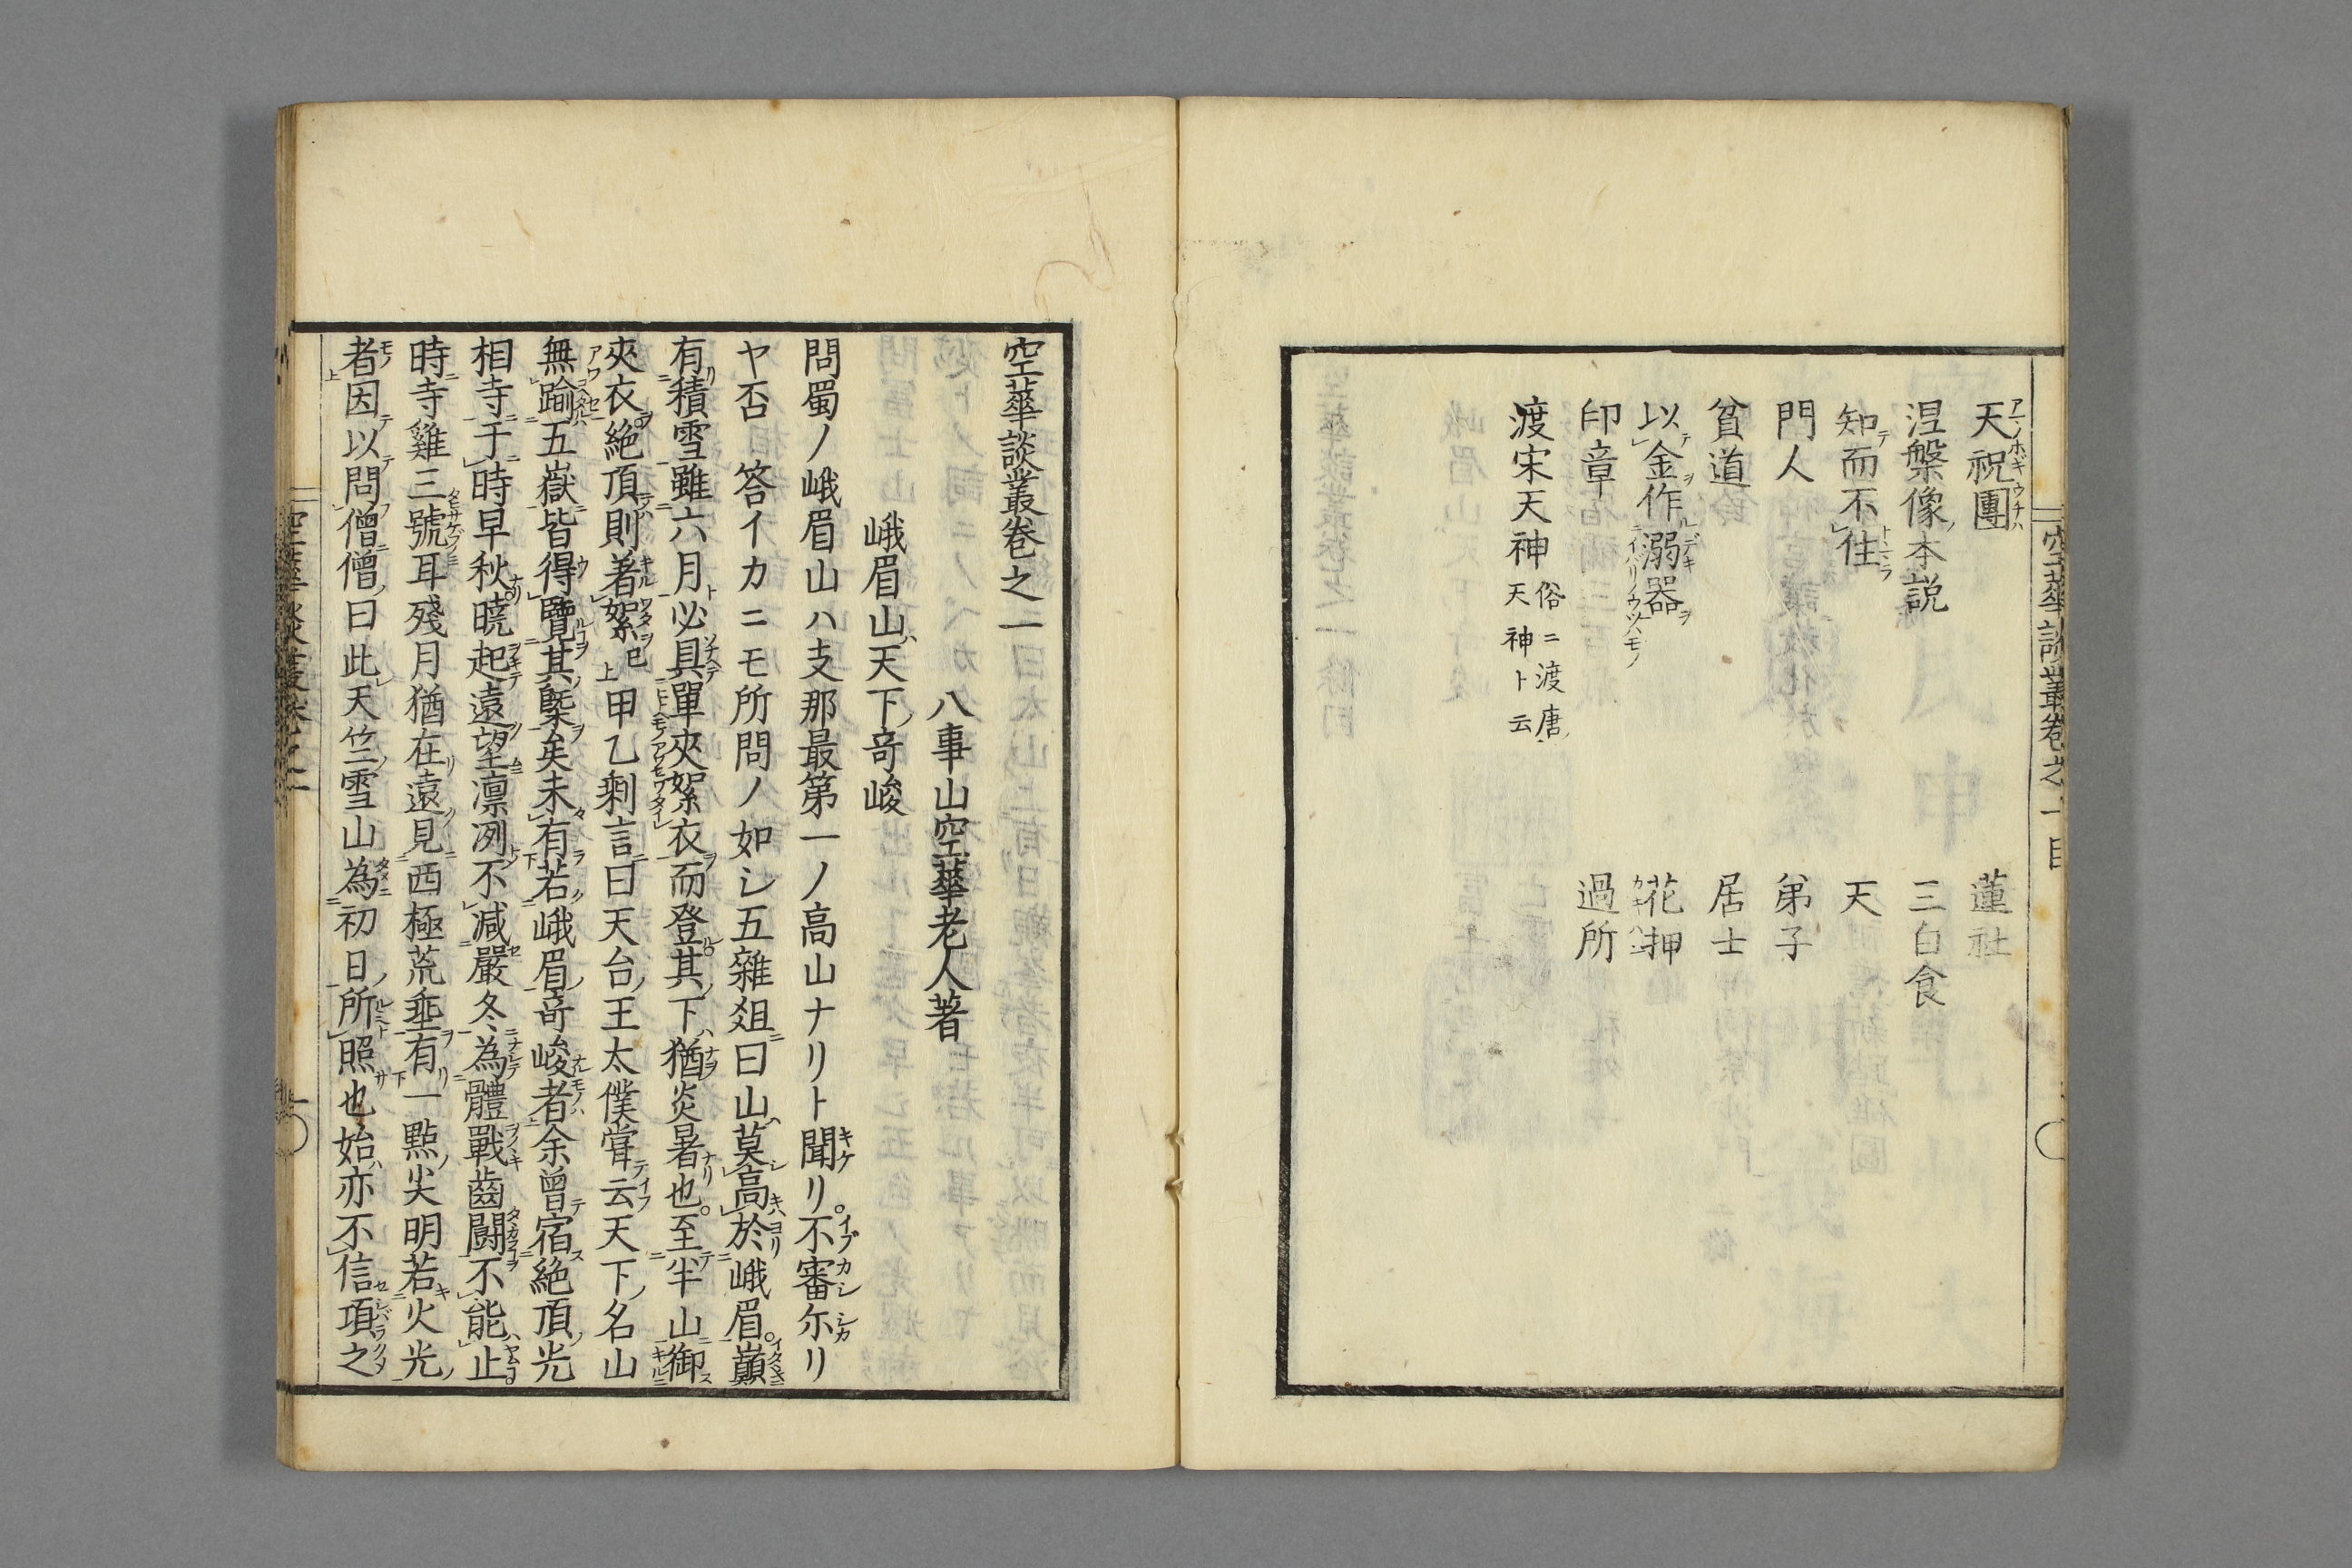 空華談叢巻之一目
天祝團　蓮社
涅槃像ノ本説　三白食
知テ而不住　天
門人　弟子
貧道　居士
以金作溺器　花押
印章　過所
渡宋天神 俗ニ渡唐ノ天神ト云
空華談叢巻之一
八事山空華老人著
峨眉山ハ天下ノ奇峻
問蜀ノ峨眉山ハ支那最第一ノ高山ナリト聞リ。不審尓リ
ヤ否　答イカニモ所問ノ如シ五雜爼ニ曰山ハ莫高於峨眉。巓
有積雪雖六月必具單夾絮衣而登其下猶炎暑也。至半山御
夾衣絶頂則著絮已上甲乙剩言曰天台ノ王太僕甞云天下ノ名山
無踰五嶽皆得覽其槩矣未有若峨眉奇峻者余曾宿絶頂光
相寺于時早秋曉起遠望凛冽不減嚴冬為體戰齒闘不能止
時寺雞三號耳殘月猶在遠見西極荒埀有一點尖明若火光
者因以問僧僧曰此天竺雪山為初日所照也始亦不信頃之